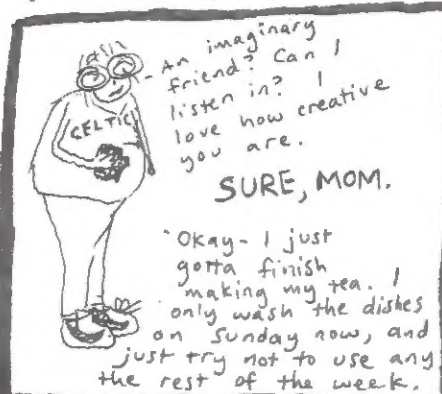 - An imaginary
friend? Can I
listen in? I
love how creative
you are.
CELTIC
SURE, MOM.
Okay - I just
gotta finish
making my tea. I
only wash the dishes
on Sunday now, and
just try not to use any
the rest of the week.